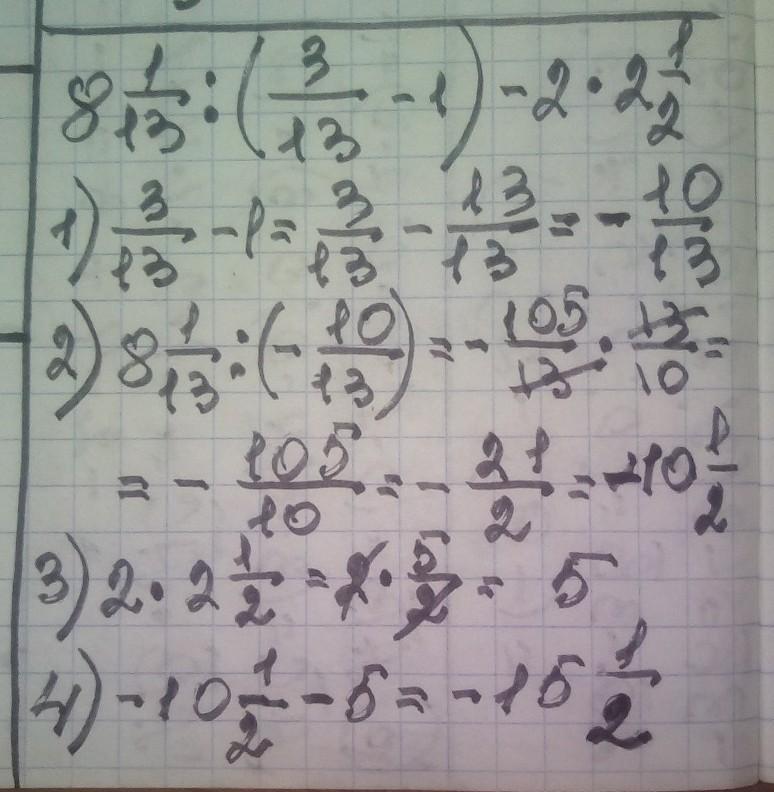 8 1/13 : (3/13 - 1) - 2 · 2 1/2
1) 3/13 - 1 = 3/13 - 13/13 = - 10/13
2) 8 1/13 : (- 10/13) = - 105/13 · 13/10 =
= - 105/10 = - 21/2 = -10 1/2
3) 2 · 2 1/2 = 2 · 5/2 = 5
4) -10 1/2 - 5 = -15 1/2